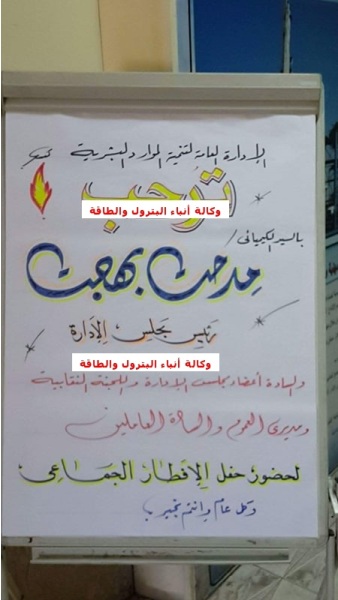 الإدارة العامة لتنمية الموارد البشرية
ترحب
وكالة أنباء البترول والطاقة
بالسيد الكيميائى /
مدحت بهجت
رئيس مجلس الإدارة
وكالة أنباء البترول والطاقة
والسادة أعضاء مجلس الإدارة واللجنة النقابية
ومديرى العموم والسادة العاملين
لحضور حفل الإفطار الجماعى
وكل عام وانتم بخير